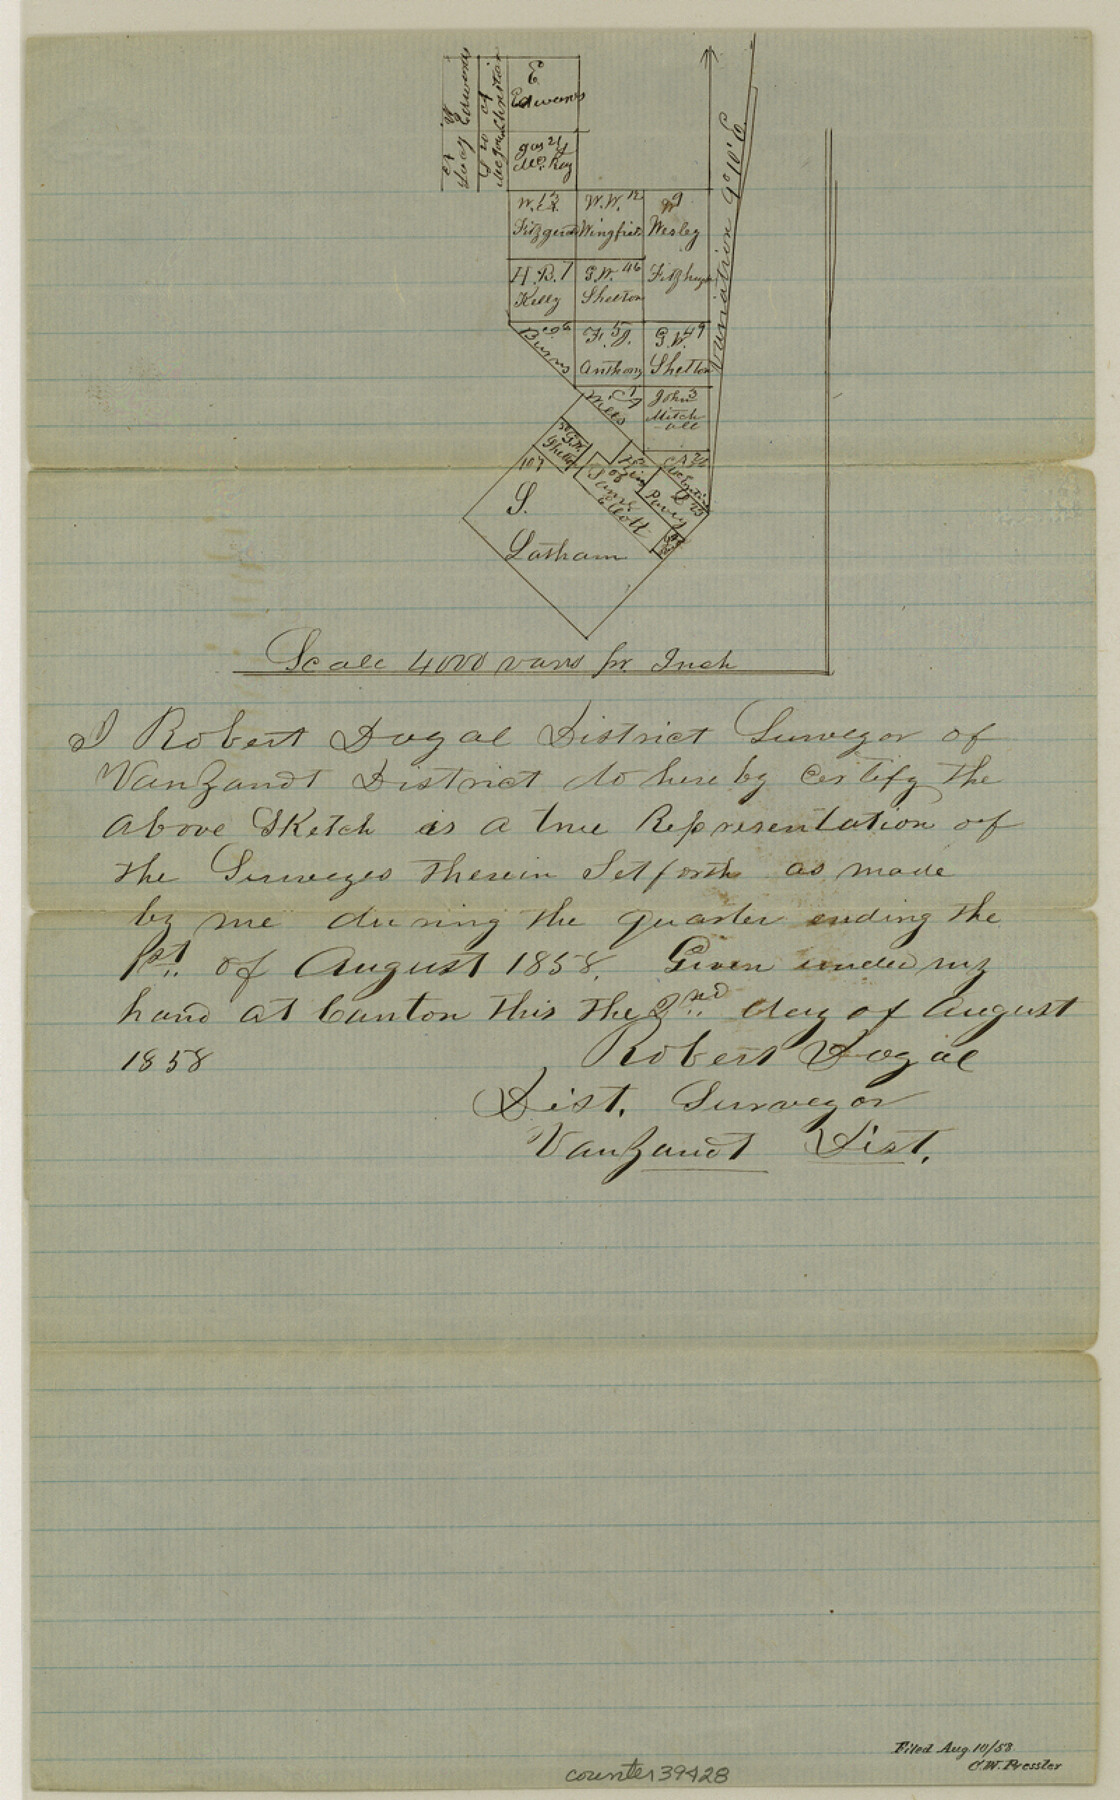 Lucy Edwards
Christian
E
Edwards
Jas 24
McKoy
W. 13
Fitzgerald
W.W. 12
Wingfield
9
Wesley
Fitzhugh
H.B. 7
Kelly
G.W. 46
Shelton
6
Burns
F. J. 5
Anthony
G.W. 49
Shelton
Wells
John 3
Mitch
-all
Shelton
107
S.
Latham
Saml
Elliott
Variation 9°10' E
Scale 4000 varas pr. Inch
I Robert Dogal District Surveyor of
VanZandt District do here by certify the
above Sketch is a true Representation of
the Surveyes therein Setforth as made
by me during the quarter ending the
1st of August 1858. Given under my
hand at Canton this the 2nd day of August
1858
Robert Dogal
Dist. Surveyor
VanZandt Dist.
Filed Aug. 10/58
C.W. Pressler
counter 39428